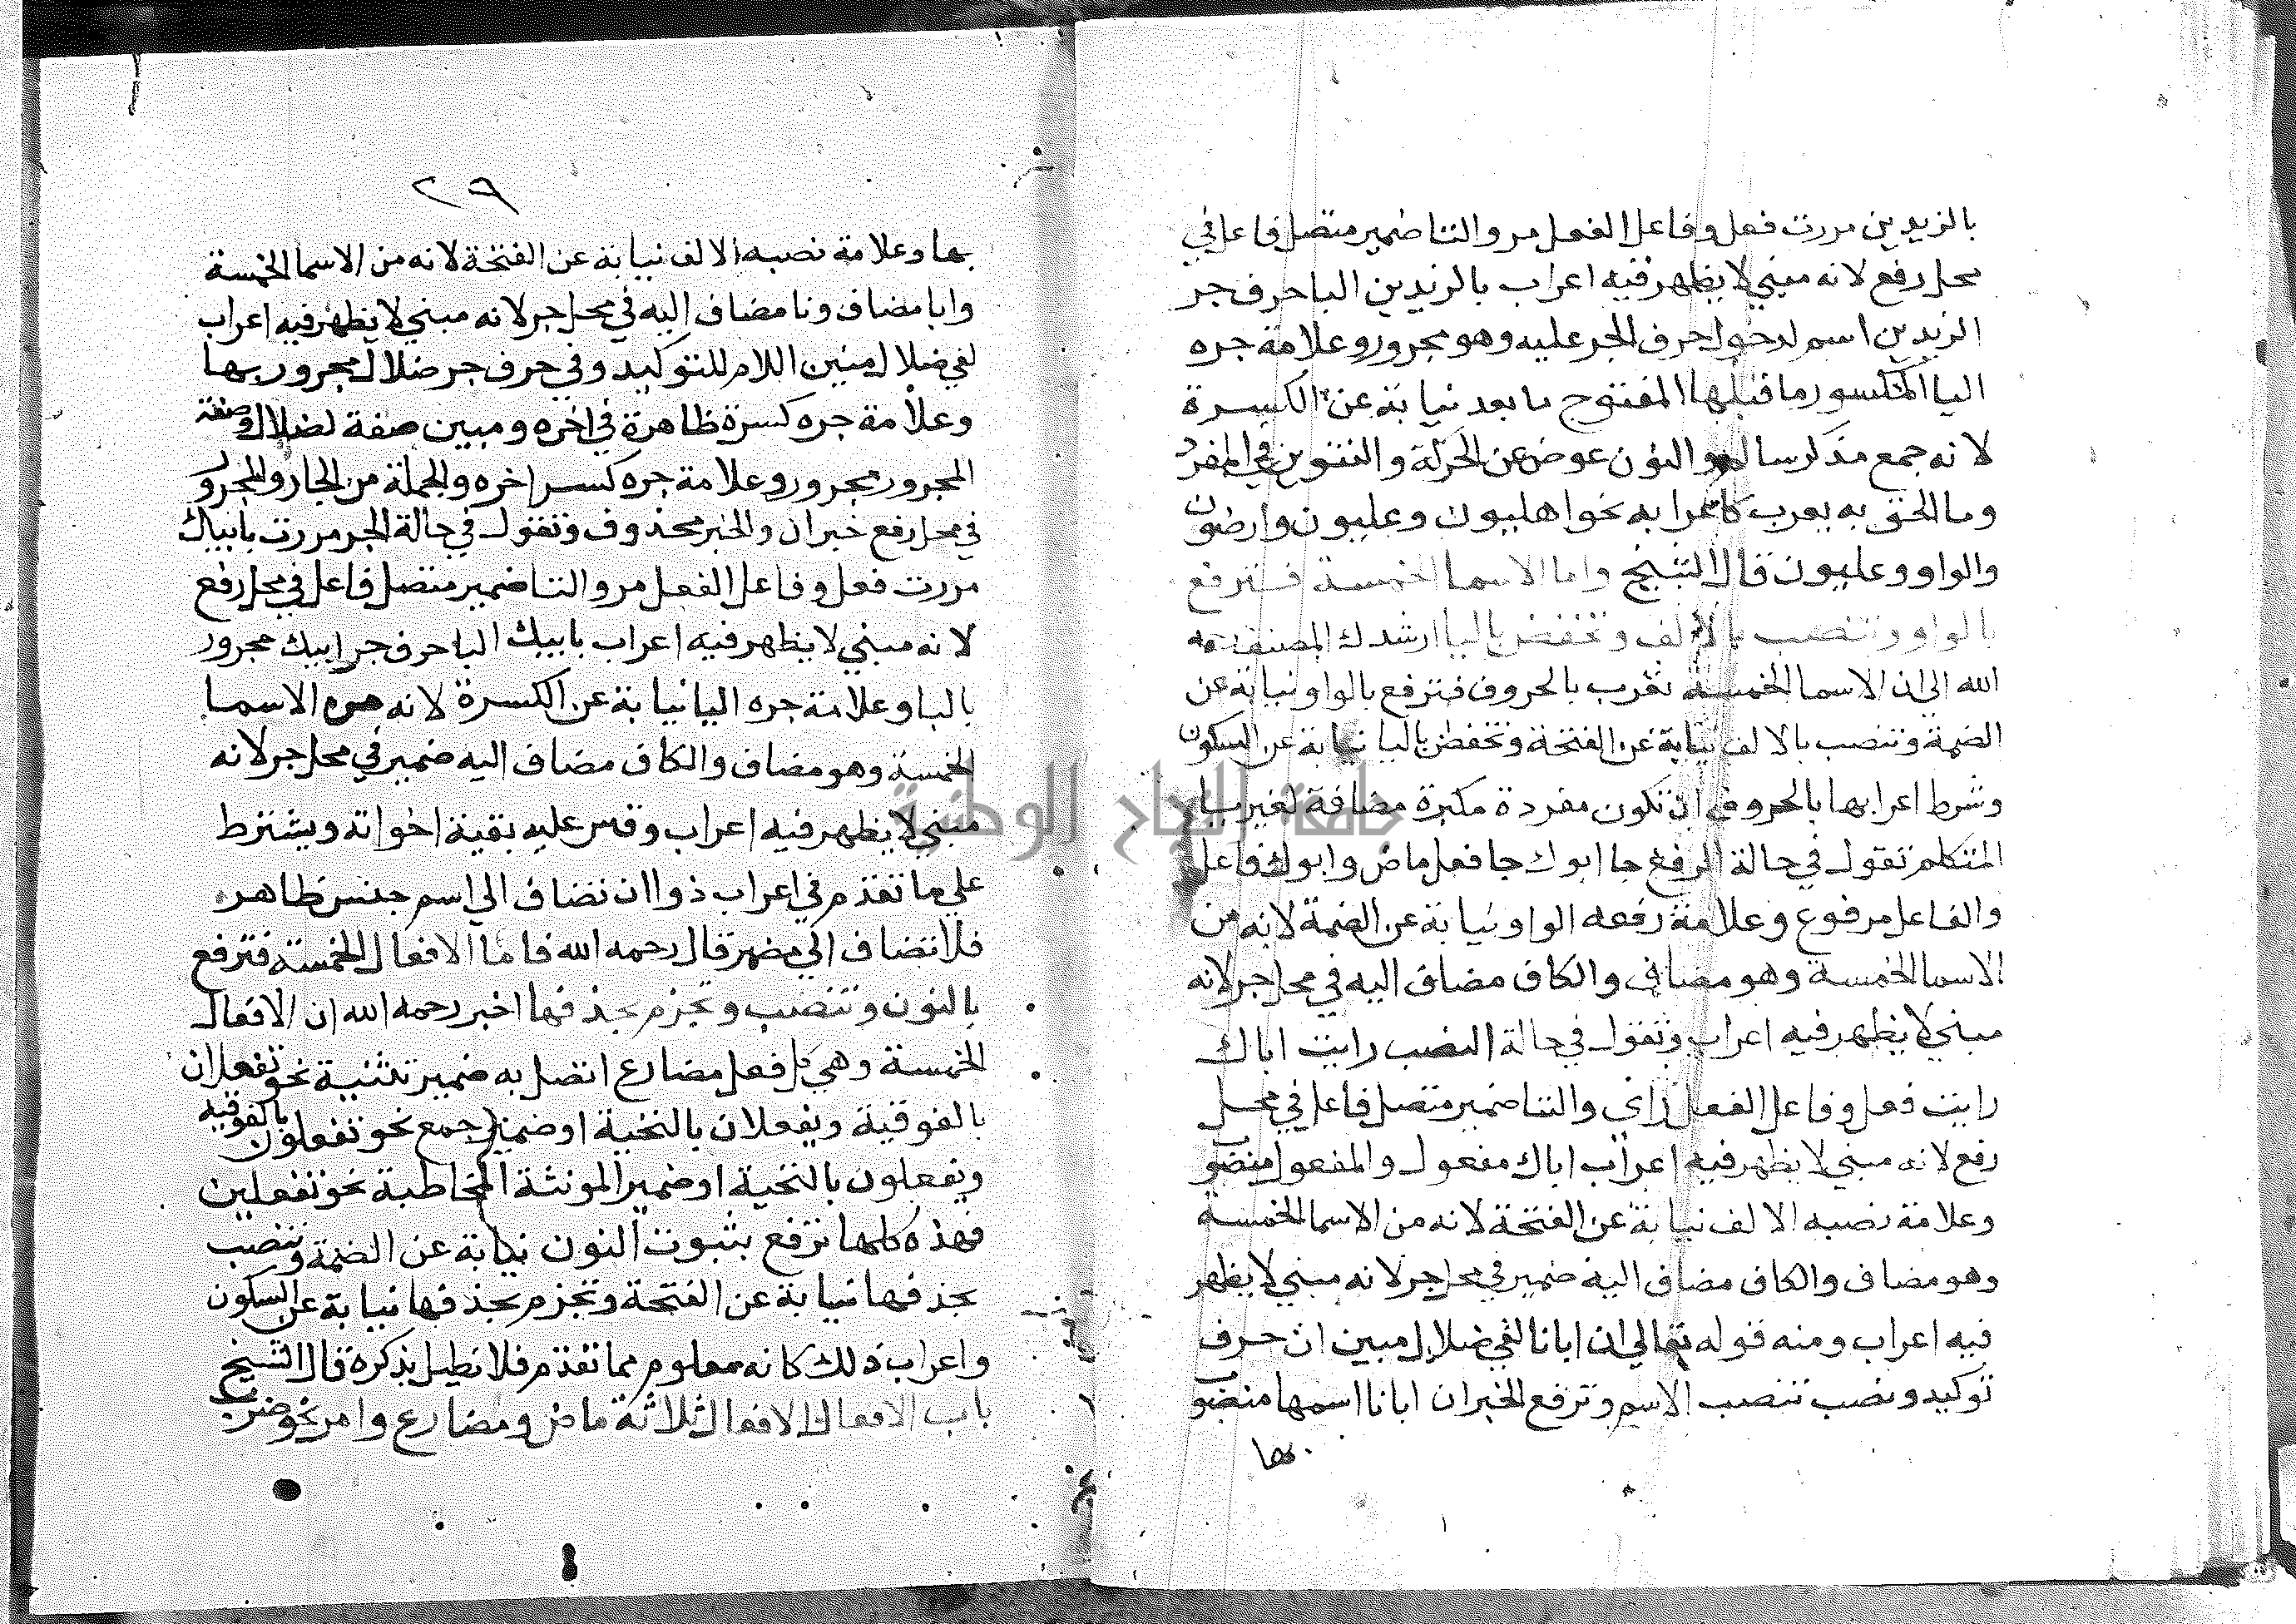 بالزيدين مررت فعل وفاعل الفعل مر والتا ضمير متصل فاعل في
محل رفع لانه مبني لا يظهر فيه اعراب بالزيدين البا حرف جر
الزيدين اسم لدخول حرف الجر عليه وهو مجرور وعلامة جره
اليا المكسور ما قبلها المفتوح ما بعد نيابة عن الكسرة
لانه جمع مذكر سالم والنون عوض عن الحركة والتنوين في المفرد
وما الحق به يعرب كاعرابه نحو اهليون وعليون وارضون
والواو وعليون قال الشيخ واما الاسما الخمسة فترفع
بالواو وتنصب بالالف وتخفض باليا ارشدك المصنف رحمه
الله الى ان الاسما الخمسة تعرب بالحروف فترفع بالواو نيابة عن
الضمة وتنصب بالالف نيابة عن الفتحة وتخفض باليا نيابة عن السكون
وشرط اعرابها بالحروف ان تكون مفردة مكبرة مضافة لغير يا
المتكلم تقول في حالة الرفع جا ابوك جا فعل ماض وابوك فاعل
والفاعل مرفوع وعلامة رفعه الواو نيابة عن الضمة لانه من
الاسما الخمسة وهو مضاف والكاف مضاف اليه في محل جر لانه
مبني لا يظهر فيه اعراب وتقول في حالة النصب رايت اباك
رايت فعل وفاعل الفعل راى والتا ضمير متصل فاعل في محل
رفع لانه مبني لا يظهر فيه اعراب اباك مفعول والمفعول منصوب
وعلامة نصبه الالف نيابة عن الفتحة لانه من الاسما الخمسة
وهو مضاف والكاف مضاف اليه ضمير في محل جر لانه مبني لا يظهر
فيه اعراب ومنه قوله تعالي ان ابانا لفي ضلال مبين ان حرف
توكيد ونصب تنصب الاسم وترفع الخبر ان ابانا اسمها منصوب
بها
٢٩
بها وعلامة نصبه الالف نيابة عن الفتحة لانه من الاسما الخمسة
وابا مضاف ونا مضاف اليه في محل جر لانه مبني لا يظهر فيه اعراب
لفي ضلال مبين اللام للتوكيد وفي حرف جر ضلال مجرور بها
وعلامة جره كسرة ظاهرة في اخره ومبين صفة لضلال وصفة
المجرور مجرور وعلامة جره كسر اخره والجملة من الجار والمجرور
في محل رفع خبر ان والخبر محذوف وتقول في حالة الجر مررت بابيك
مررت فعل وفاعل الفعل مر والتا ضمير متصل فاعل في محل رفع
لانه مبني لا يظهر فيه اعراب بابيك البا حرف جر ابيك مجرور
بالبا وعلامة جره اليا نيابة عن الكسرة لانه من الاسما
الخمسة وهو مضاف والكاف مضاف اليه ضمير في محل جر لانه
مبني لا يظهر فيه اعراب وقس عليه بقية اخواته ويشترط
علي ما تقدم في اعراب ذو ان تضاف الي اسم جنس ظاهر
فلا تضاف الي مضمر قال رحمه الله فاما الافعال الخمسة فترفع
بالنون وتنصب وتجزم بحذفها اخبر رحمه الله ان الافعال
الخمسة وهي كل فعل مضارع اتصل به ضمير تثنية نحو تفعلان
بالفوقية ويفعلان بالتحية او ضمير جمع نحو تفعلون بالفوقيه
ويفعلون بالتحية او ضمير المونثة المخاطبة نحو تفعلين
فهذه كلها ترفع بثبوت النون نيابة عن الضمة وتنصب
بحذفها نيابة عن الفتحة وتجزم بحذفها نيابة عن السكون
واعراب ذلك كانه معلوم مما تقدم فلا نطيل بذكره قال الشيخ
باب الافعال الافعال ثلاثة ماض ومضارع وامر نحو ضرب
جامعة النجاح الوطنية